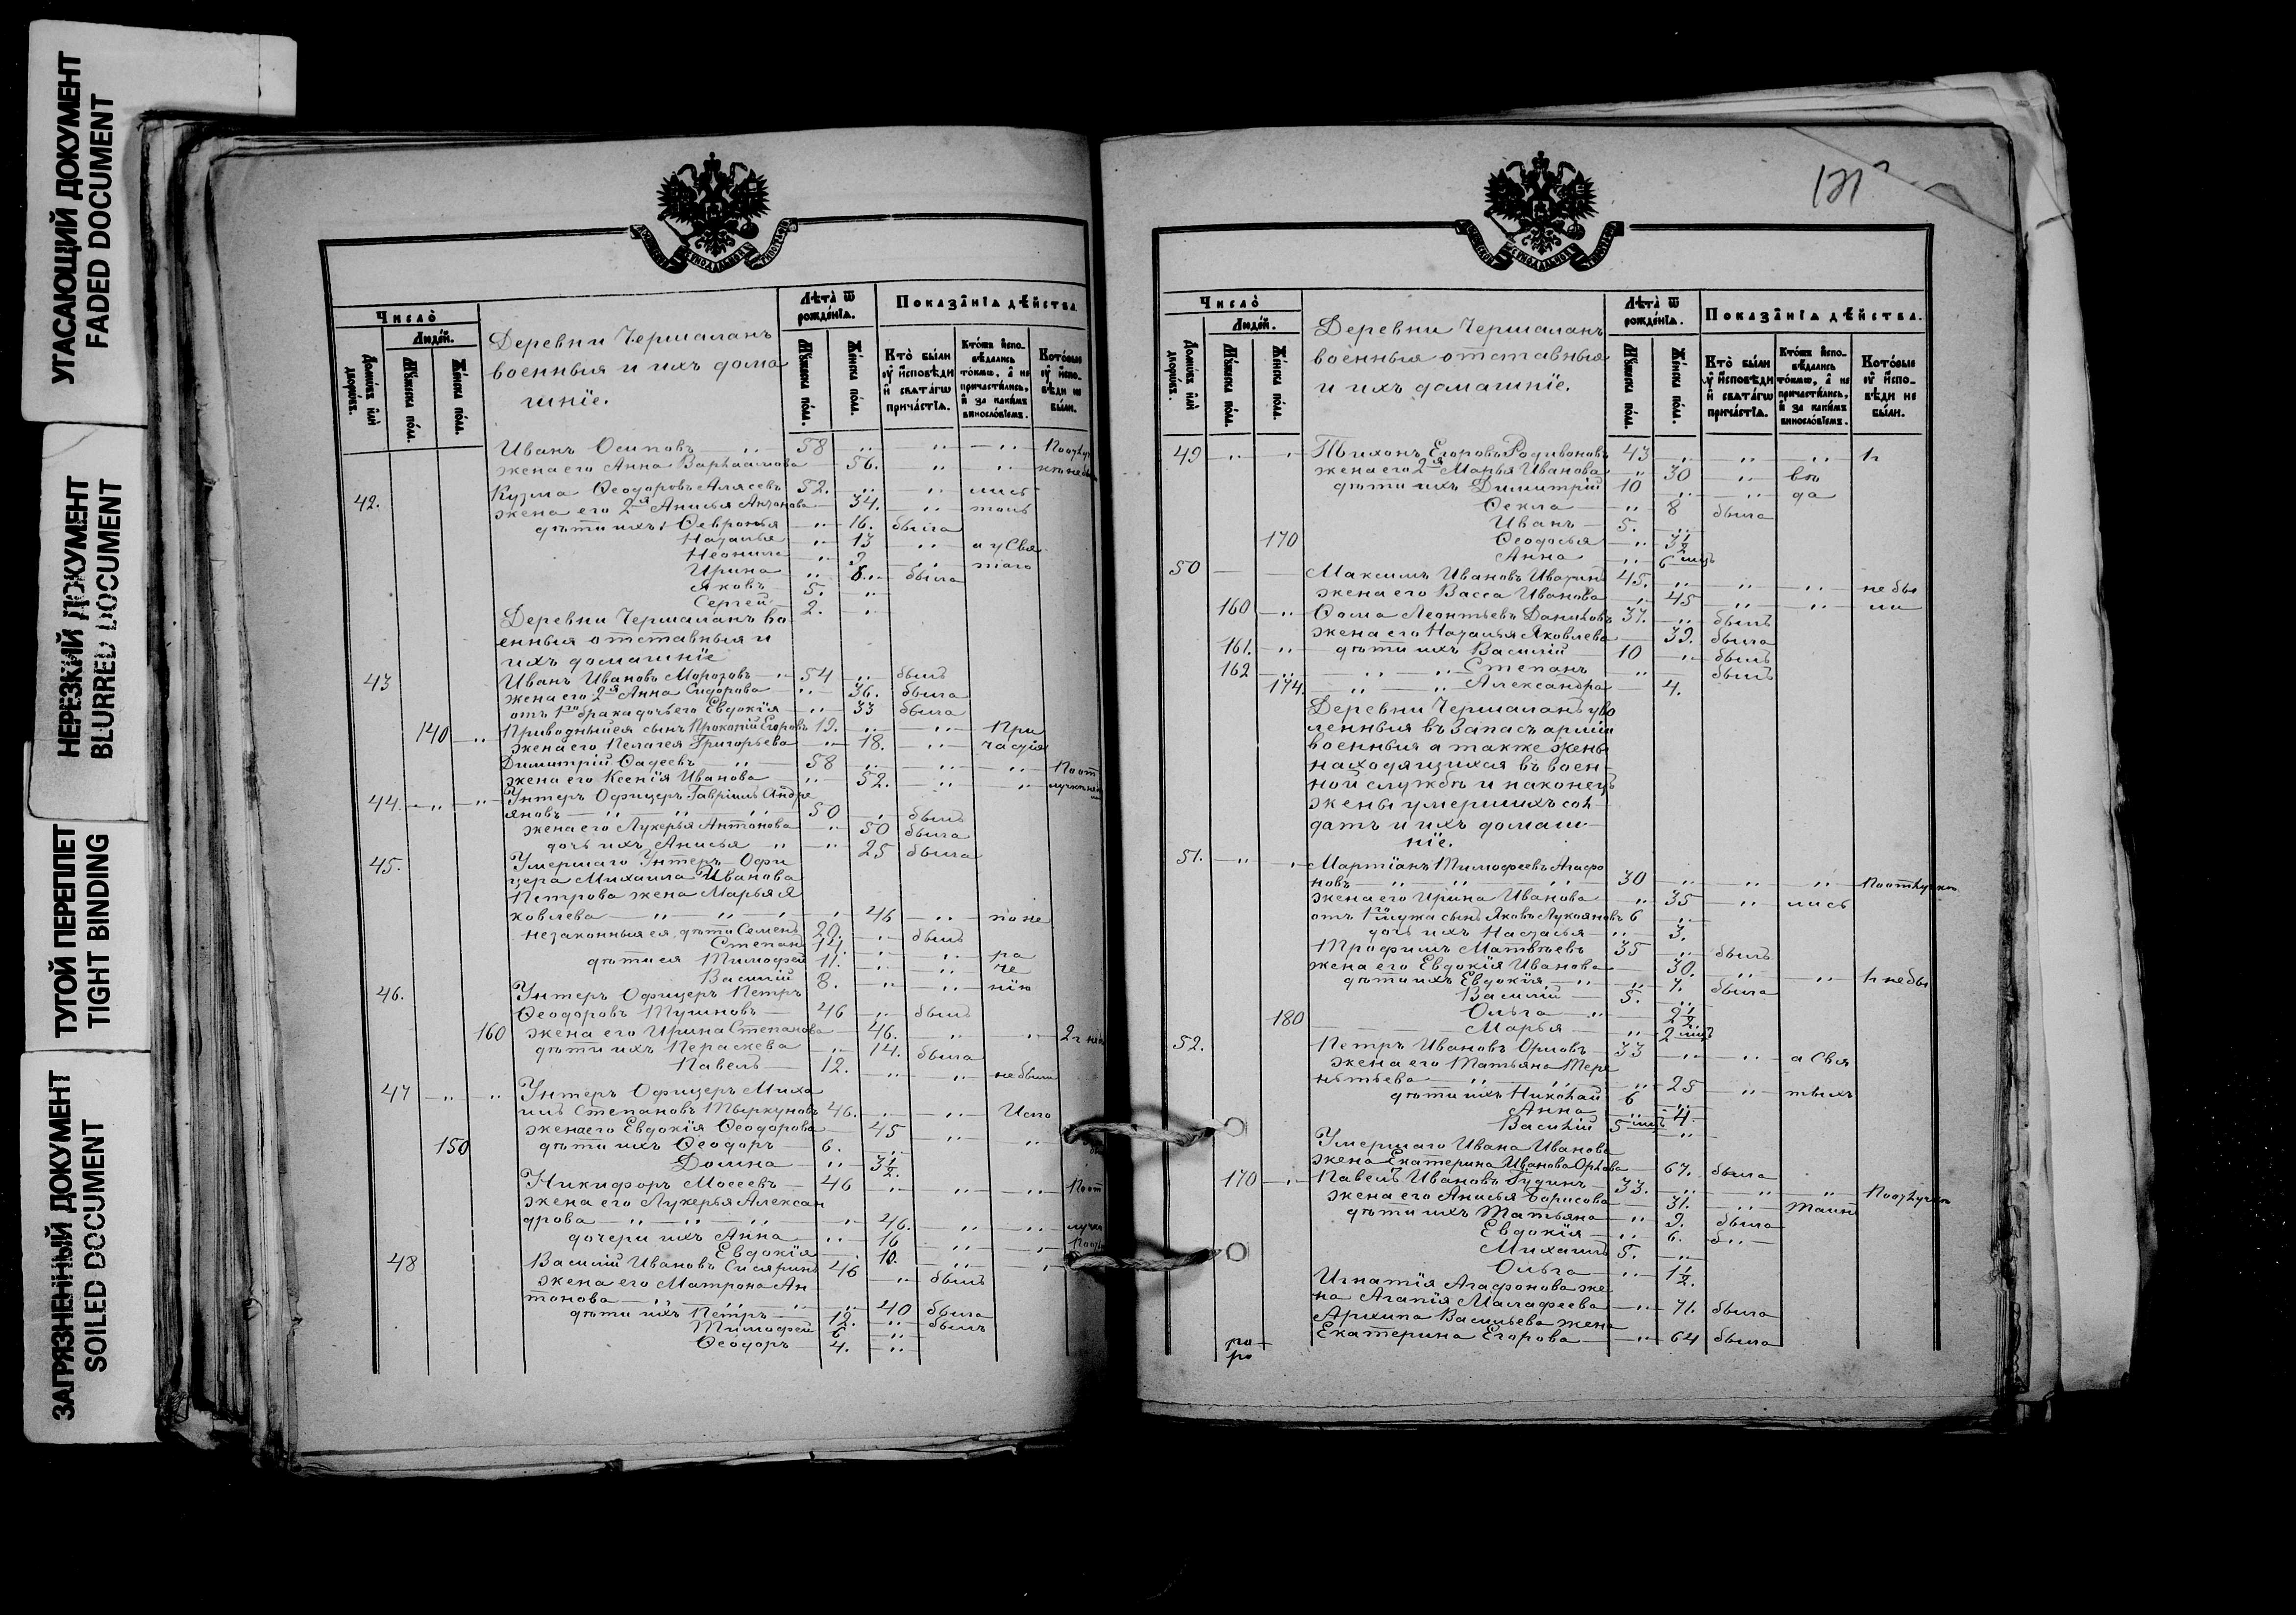 УГАСАЮЩИЙ ДОКУМЕНТ
FADED DOCUMENT
НЕРЕЗКИЙ ДОКУМЕНТ
BLURRED DOCUMENT
ТУГОЙ ПЕРЕПЛЕТ
TIGHT BINDING
ЗАГРЯЗНЕННЫЙ ДОКУМЕНТ
SOILED DOCUMENT
Число̀
Людей.
Домовъ или дворовъ.
Мужеска пола.
Женска пола.
Деревни Чермаланъ
военныя и ихъ дома
шніе.
Лѣта ѿ рожденія.
Мужеска пола.
Женска пола.
Показанія дѣйства
Кто были у исповѣди и святагω причастія.
Ктожъ исповѣдались токмω, а не причастились, и за какимъ винословіемъ.
Которые у исповѣди не были.
Иванъ Осиповъ 58
жена его Анна Варѳасимова 56.
42. Кузма Ѳеодоровъ Алясевъ 52. лись
жена его 2я Анисья Антонова 34. толь
дѣти ихъ: Ѳевронья 16. была
Наталья 13 а у Свя
Неонила таго
Ирина 8 была
Яковъ 5.
Сергей 2.
Деревни Чермаланъ во
енныя отставныя и
ихъ домашніе
43 Иванъ Ивановъ Морозовъ 54 былъ
жена его 2я Анна Сидорова 36. была
отъ 1го брака дочь его Евдокія 33 была
140 Приводныйея сынъ Прокопій Егоровъ 19. При
жена его Пелагея Григорьева 18. частія
Димитрій Ѳадеевъ 58 Поот
жена его Ксенія Иванова 52.
44. Унтеръ Офицеръ Гавріилъ Андре
яновъ 50 былъ
жена его Лукерья Антонова 50 была
дочь ихъ Анисья 25 была
45. Умершаго Унтеръ-Офи
цера Михаила Иванова
Петрова жена Марья Я
ковлева 46 по не
незаконныя ея дѣти Семенъ 20. былъ
Степанъ 14. ра
дѣти ея Тимофей 11. че
Василій 8. нію
46. Унтеръ Офицеръ Петръ
Ѳеодоровъ Тушновъ 46 былъ
160 жена его Ирина Степанова 46.
дѣти ихъ Пераскева 14. была
Павелъ 12. не были
47 Унтеръ Офицеръ Миха
илъ Степановъ Тыркуновъ 46. Испо
жена его Евдокія Ѳеодорова 45
150 дѣти ихъ Ѳеодоръ 6.
Домна 3½.
Никифоръ Мосеевъ 46 Поот
жена его Лукерья Алексан
дрова 46. лучк
дочери ихъ Анна 16
Евдокія 10.
48 Василій Ивановъ Сисяринъ 46 былъ
жена его Матрона Ан
тонова 40 была
дѣти ихъ Петръ 12. былъ
Тимофей 6
Ѳеодоръ 4.
Число̀
Людей.
Домовъ или дворовъ.
Мужеска пола.
Женска пола.
Деревни Чермаланъ
военныя отставныя
и ихъ домашніе.
Лѣта ѿ рожденія.
Мужеска пола.
Женска пола.
Показанія дѣйства.
Кто были у исповѣди и святагω причастія.
Ктожъ исповѣдались токмω, а не причастились, и за какимъ винословіемъ.
Которые у исповѣди не были.
49 Тихонъ Егоровъ Родивоновъ 43
жена его 2я Марья Иванова 30 вѣ
дѣти ихъ Димитрій 10 да
Ѳекла 8 была
Иванъ 5.
170 Ѳеодосья 3½
Анна 6 мцъ
50 Максимъ Ивановъ Ивагинъ 45. не бы
жена его Васса Иванова 45 ли
160 Ѳома Леонтьевъ Даниловъ 37. былъ
жена его Наталья Яковлева 39. была
161. дѣти ихъ Василій 10 былъ
162 Степанъ былъ
174. Александра 4.
Деревни Чермаланъ уво
ленныя въ Запасъ арміи
военныя а также жены
находящихся въ воен-
ной службѣ и наконецъ
жены умершихъ сол
датъ и ихъ домаш-
ніе.
51. Мартіанъ Тимофеевъ Агафо
новъ 30 Поотлучк
жена его Ирина Иванова 35 лись
отъ 1го мужа сынъ Яковъ Лукояновъ 6
дочь ихъ Настасья 3.
Трофимъ Матвѣевъ 35 былъ
жена его Евдокія Иванова 30. не бы
дѣти ихъ Евдокія 7. была
Василій 5.
Ольга 2½
180 Марья 2 мцъ
52. Петръ Ивановъ Орловъ 33 а Свя
жена его Татьяна Тере
нтьева 25 тыхъ
дѣти ихъ Николай 6
Анна 4.
Василій 5 мцъ
Умершаго Ивана Иванова
жена Екатерина Иванова Орлова 67. была
170 Павелъ Ивановъ Гудинъ 33. Поотлучк
жена его Анисья Борисова 31. Таин
дѣти ихъ Татьяна 9. была
Евдокія 6.
Михаилъ 5.
Ольга 1½.
Игнатія Агафонова же
на Агапія Малафеева 71. была
Архипа Васильева жена
Екатерина Егорова 64 была